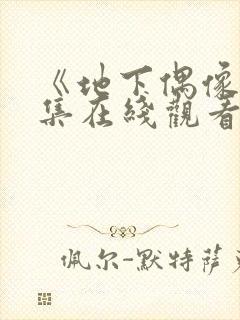 《地下偶像
集在綫觀看
佩尔-默特萨